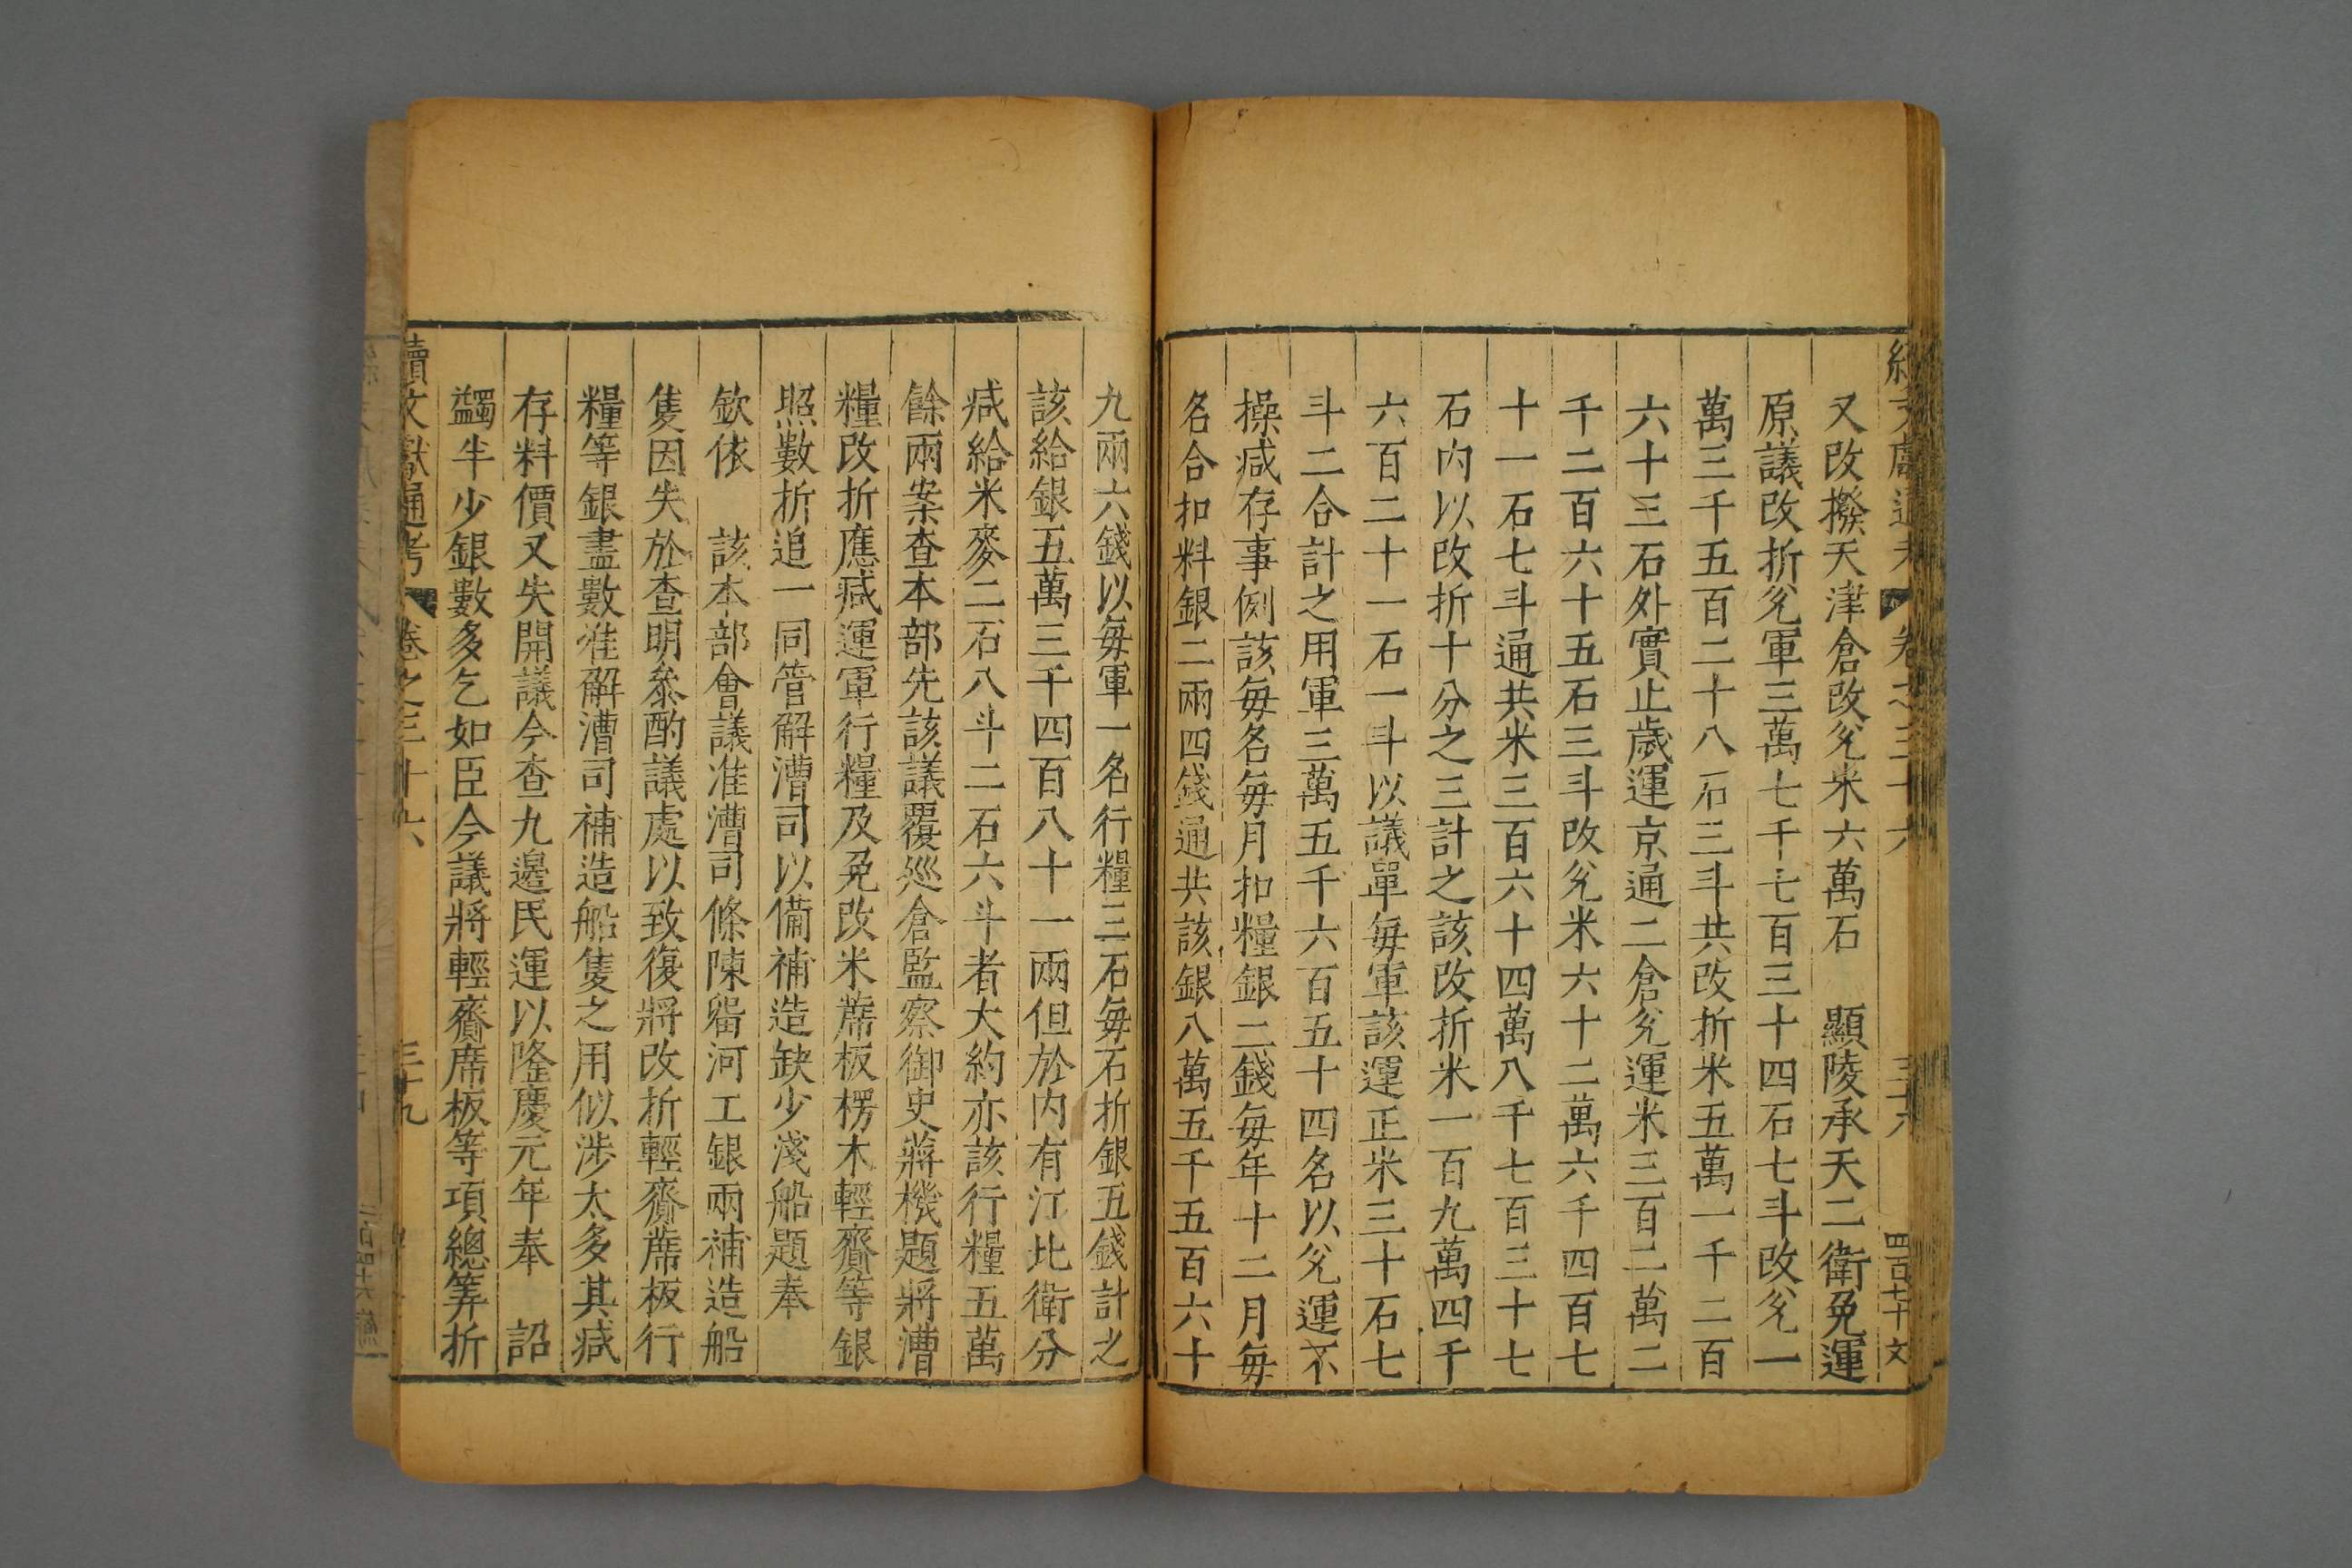 續文獻通考 卷之三十六 三十八 四百七十文
又改撥天津倉改兊米六萬石 顯陵承天二衛免運
原議改折兊軍三萬七千七百三十四石七斗改兊一
萬三千五百二十八石三斗共改折米五萬一千二百
六十三石外實止歲運京通二倉兊運米三百二萬二
千二百六十五石三斗改兊米六十二萬六千四百七
十一石七斗通共米三百六十四萬八千七百三十七
石内以改折十分之三計之該改折米一百九萬四千
六百二十一石一斗以議單每軍該運正米三十石七
斗二合計之用軍三萬五千六百五十四名以兊運不
操减存事例該每名每月扣糧銀二錢每年十二月每
名合扣料銀二兩四錢通共該銀八萬五千五百六十
九兩六錢以每軍一名行糧三石每石折銀五錢計之
該給銀五萬三千四百八十一兩但於内有江北衛分
减給米麥二石八斗二石六斗者大約亦該行糧五萬
餘兩案查本部先該議覆廵倉監察御史蔣機題將漕
糧改折應减運軍行糧及兊改米蓆板楞木輕齎等銀
照數折追一同管解漕司以備補造缺少淺船題奉
欽依 該本部會議准漕司條陳留河工銀兩補造船
隻因失於查明叅酌議處以致復將改折輕齎蓆板行
糧等銀盡數准解漕司補造船隻之用似涉太多其减
存料價又失開議今查九邊民運以隆慶元年奉 詔
蠲半少銀數多乞如臣今議將輕齎席板等項總筭折
續文獻通考 卷之三十六 三十九